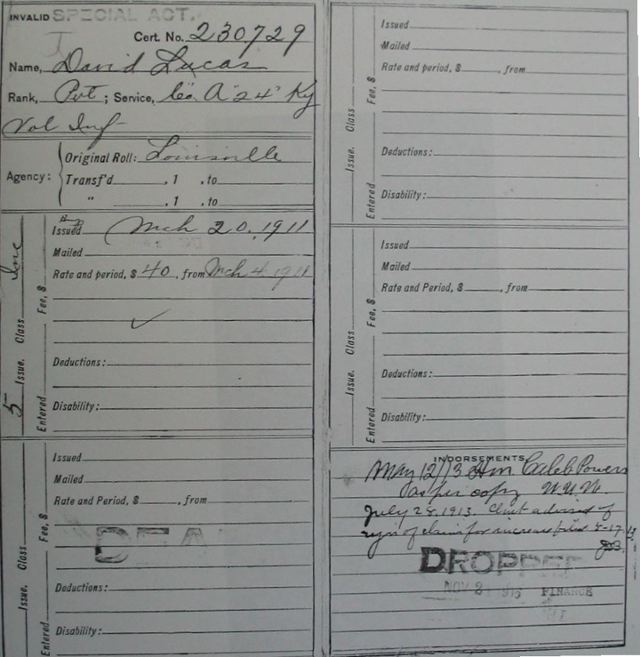 INVALID SPECIAL ACT.
I Cert. No. 230729
Name, David Lucas
Rank, Pvt ; Service, Co. A 24" Ky
Vol Inf
Agency: Original Roll: Louisville
Transf'd , 1 , to
" , 1 , to
5 Issue. Class Inc
Entered Fee, $
Issued Mch 20, 1911
Mailed
Rate and period, $ 40, from Mch 4 1911
✓
Deductions:
Disability:
Issue. Class
Entered Fee, $
Issued
Mailed
Rate and Period, $ , from
DEA
Deductions:
Disability:
Issue. Class
Entered Fee, $
Issued
Mailed
Rate and period, $ , from
Deductions:
Disability:
Issue. Class
Entered Fee, $
Issued
Mailed
Rate and Period, $ , from
Deductions:
Disability:
INDORSEMENTS
May 12/13 Hon Caleb Powers
as per copy
July 28, 1913. Clmt advised of
rejn of claim for increase filed
DROPPED
NOV 2 FINANCE